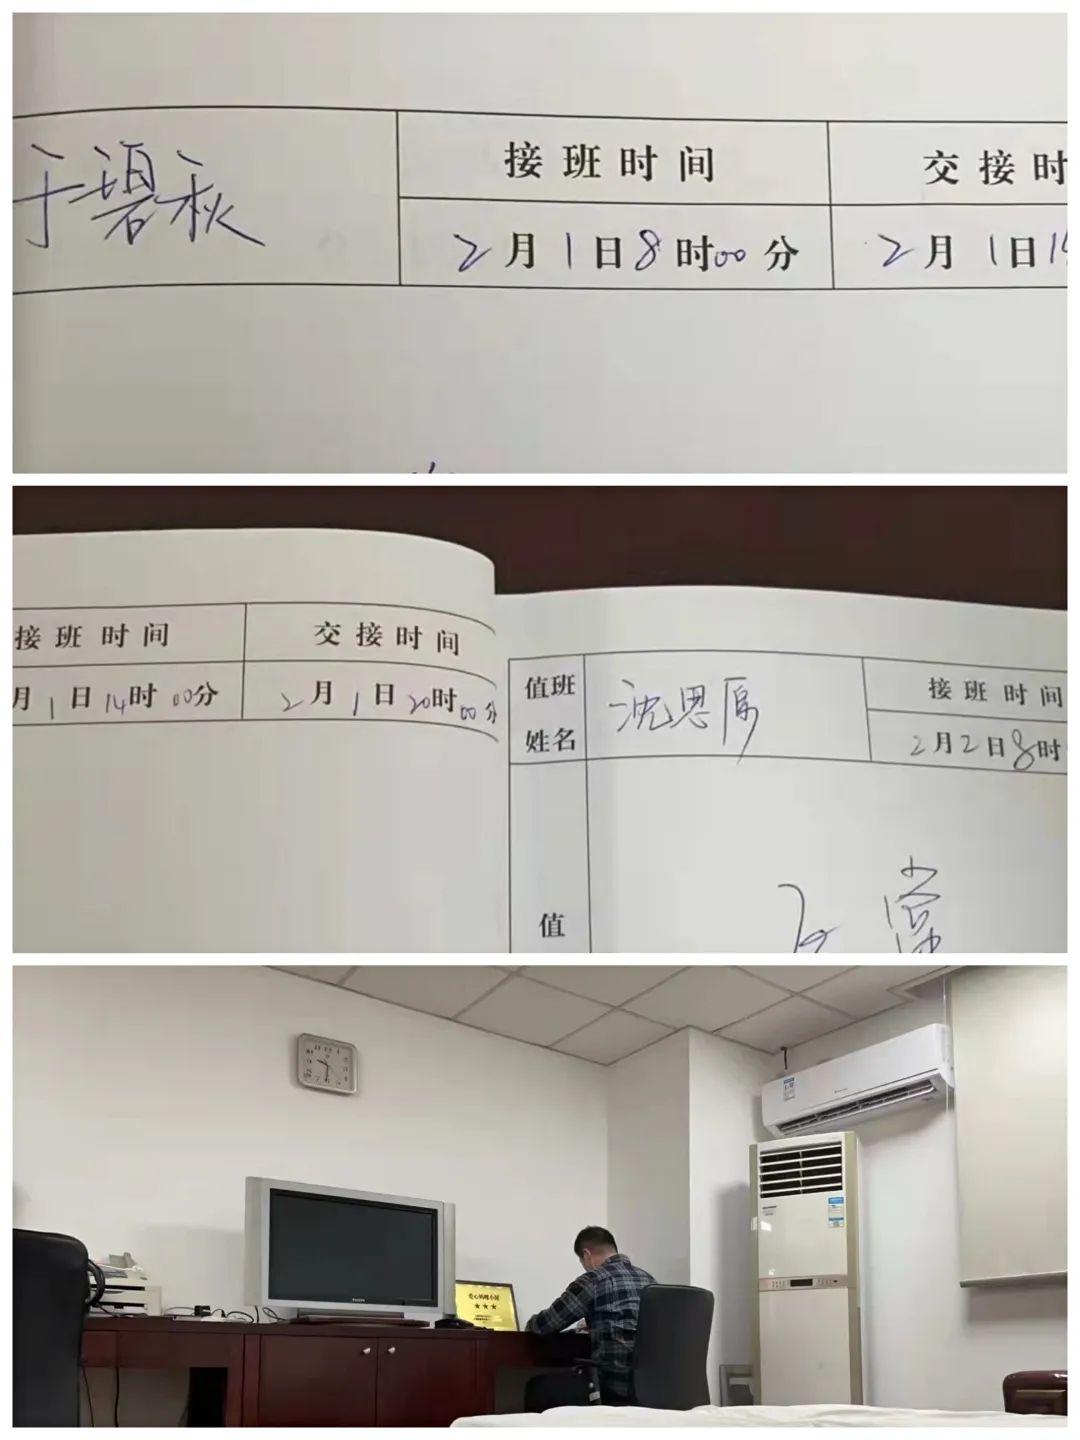 于碧秋
接班时间
交接时
2月1日8时00分
2月1日1
接班时间
交接时间
月1日14时00分
2月1日20时00分
值班
姓名
沈恩厚
接班时间
2月2日8时
值
正常
爱心妈咪小屋
★★★